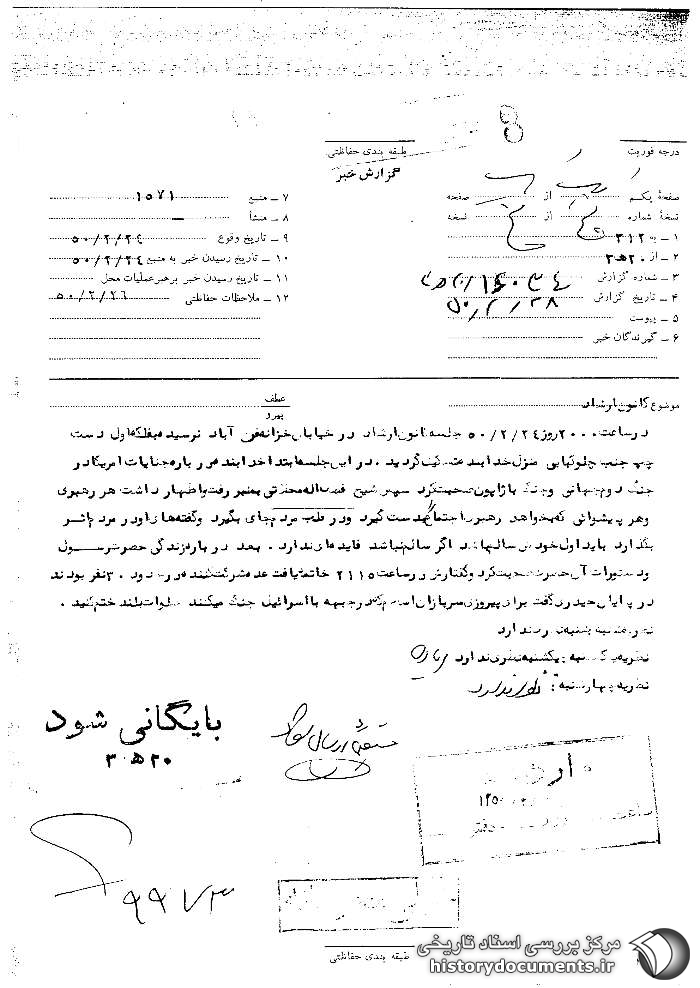 درجه فوریت
طبقه بندی حفاظتی
گزارش خبر
صفحهٔ یکم از صفحه
نسخهٔ شماره از نسخه
۱ ـ به ۳۱۲
۲ ـ از ۲۰ ه‍ ۳
۳ ـ شماره گزارش
۴ ـ تاریخ گزارش
۵ ـ پیوست
۶ ـ گیرندگان خبر
۷ ـ منبع ۱۵۷۱
۸ ـ منشأ ـ
۹ ـ تاریخ وقوع ۵۰/۲/۲٤
۱۰ ـ تاریخ رسیدن خبر به منبع ۵۰/۲/۲٤
۱۱ ـ تاریخ رسیدن خبر برهبرعملیات محل
۱۲ ـ ملاحظات حفاظتی ۵۰/۲/۲٦
موضوع کانون ارشاد
عطف
پیرو
در ساعت ۲۰۰۰ روز ۵۰/۲/۲٤ جلسه کانون ارشاد در خیابان خزانه فن آباد نرسیده بفلکه اول دست
چپ جنب چلوکبابی منزل خدابنده تشکیل گردید . در این جلسه ابتدا خدابنده در باره جنایات امریکا در
جنگ دوم جهانی وجنگ با ژاپون صحبت کرد سپس شیخ فضل اله محلاتی بمنبر رفت و اظهار داشت هر رهبری
وهر پیشوائی که بخواهد رهبر اجتماع بدست گیرد ودر قلب مردم جای بگیرد وگفته های او در مردم اثر
بگذارد باید اول خودش سالم باشد اگر سالم نباشد فایده ای ندارد . بعد در باره زندگی حضرت رسول
ودستورات آن حضرت صحبت کرد وگفتارش در ساعت ۲۱۱۵ خاتمه یافت عده شرکت کننده در حدود ۳۰ نفر بودند
در پایان حیدری گفت برای پیروزی سربازان اسلام که در جبهه با اسرائیل جنگ میکنند صلوات بلند ختم کنید .
نظریه شنبه نظری ندارد
نظریه یکشنبه : یکشنبه نظری ندارد
نظریه چهارشنبه :
بایگانی شود
۲۰ ه‍ ۳
۹۹۷۳
طبقه بندی حفاظتی
مرکز بررسی اسناد تاریخی
historydocuments.ir